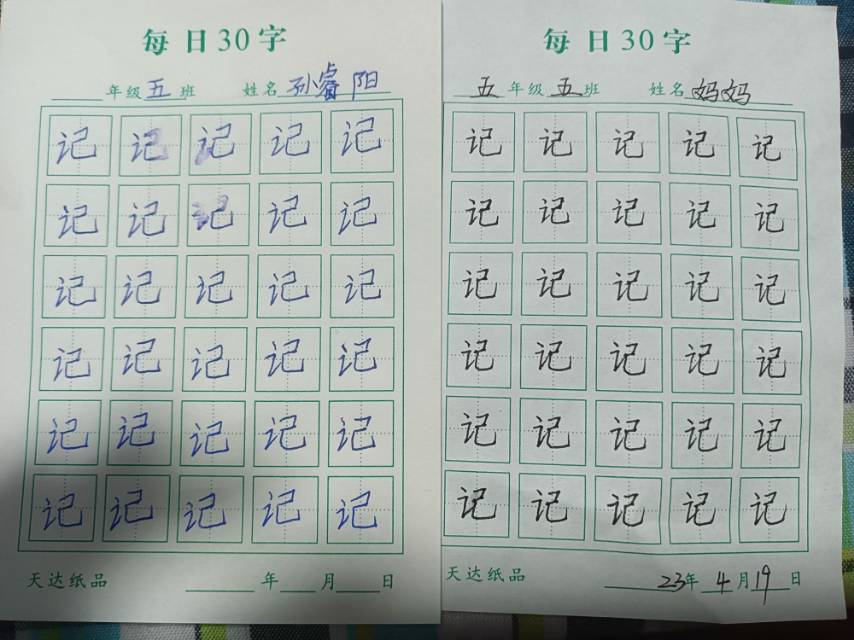 每日30字
年级五班 姓名孙睿阳
记记记记记
记记记记记
记记记记记
记记记记记
记记记记记
记记记记记
天达纸品 年 月 日
每日30字
五年级五班 姓名妈妈
记记记记记
记记记记记
记记记记记
记记记记记
记记记记记
记记记记记
天达纸品 23年4月19日